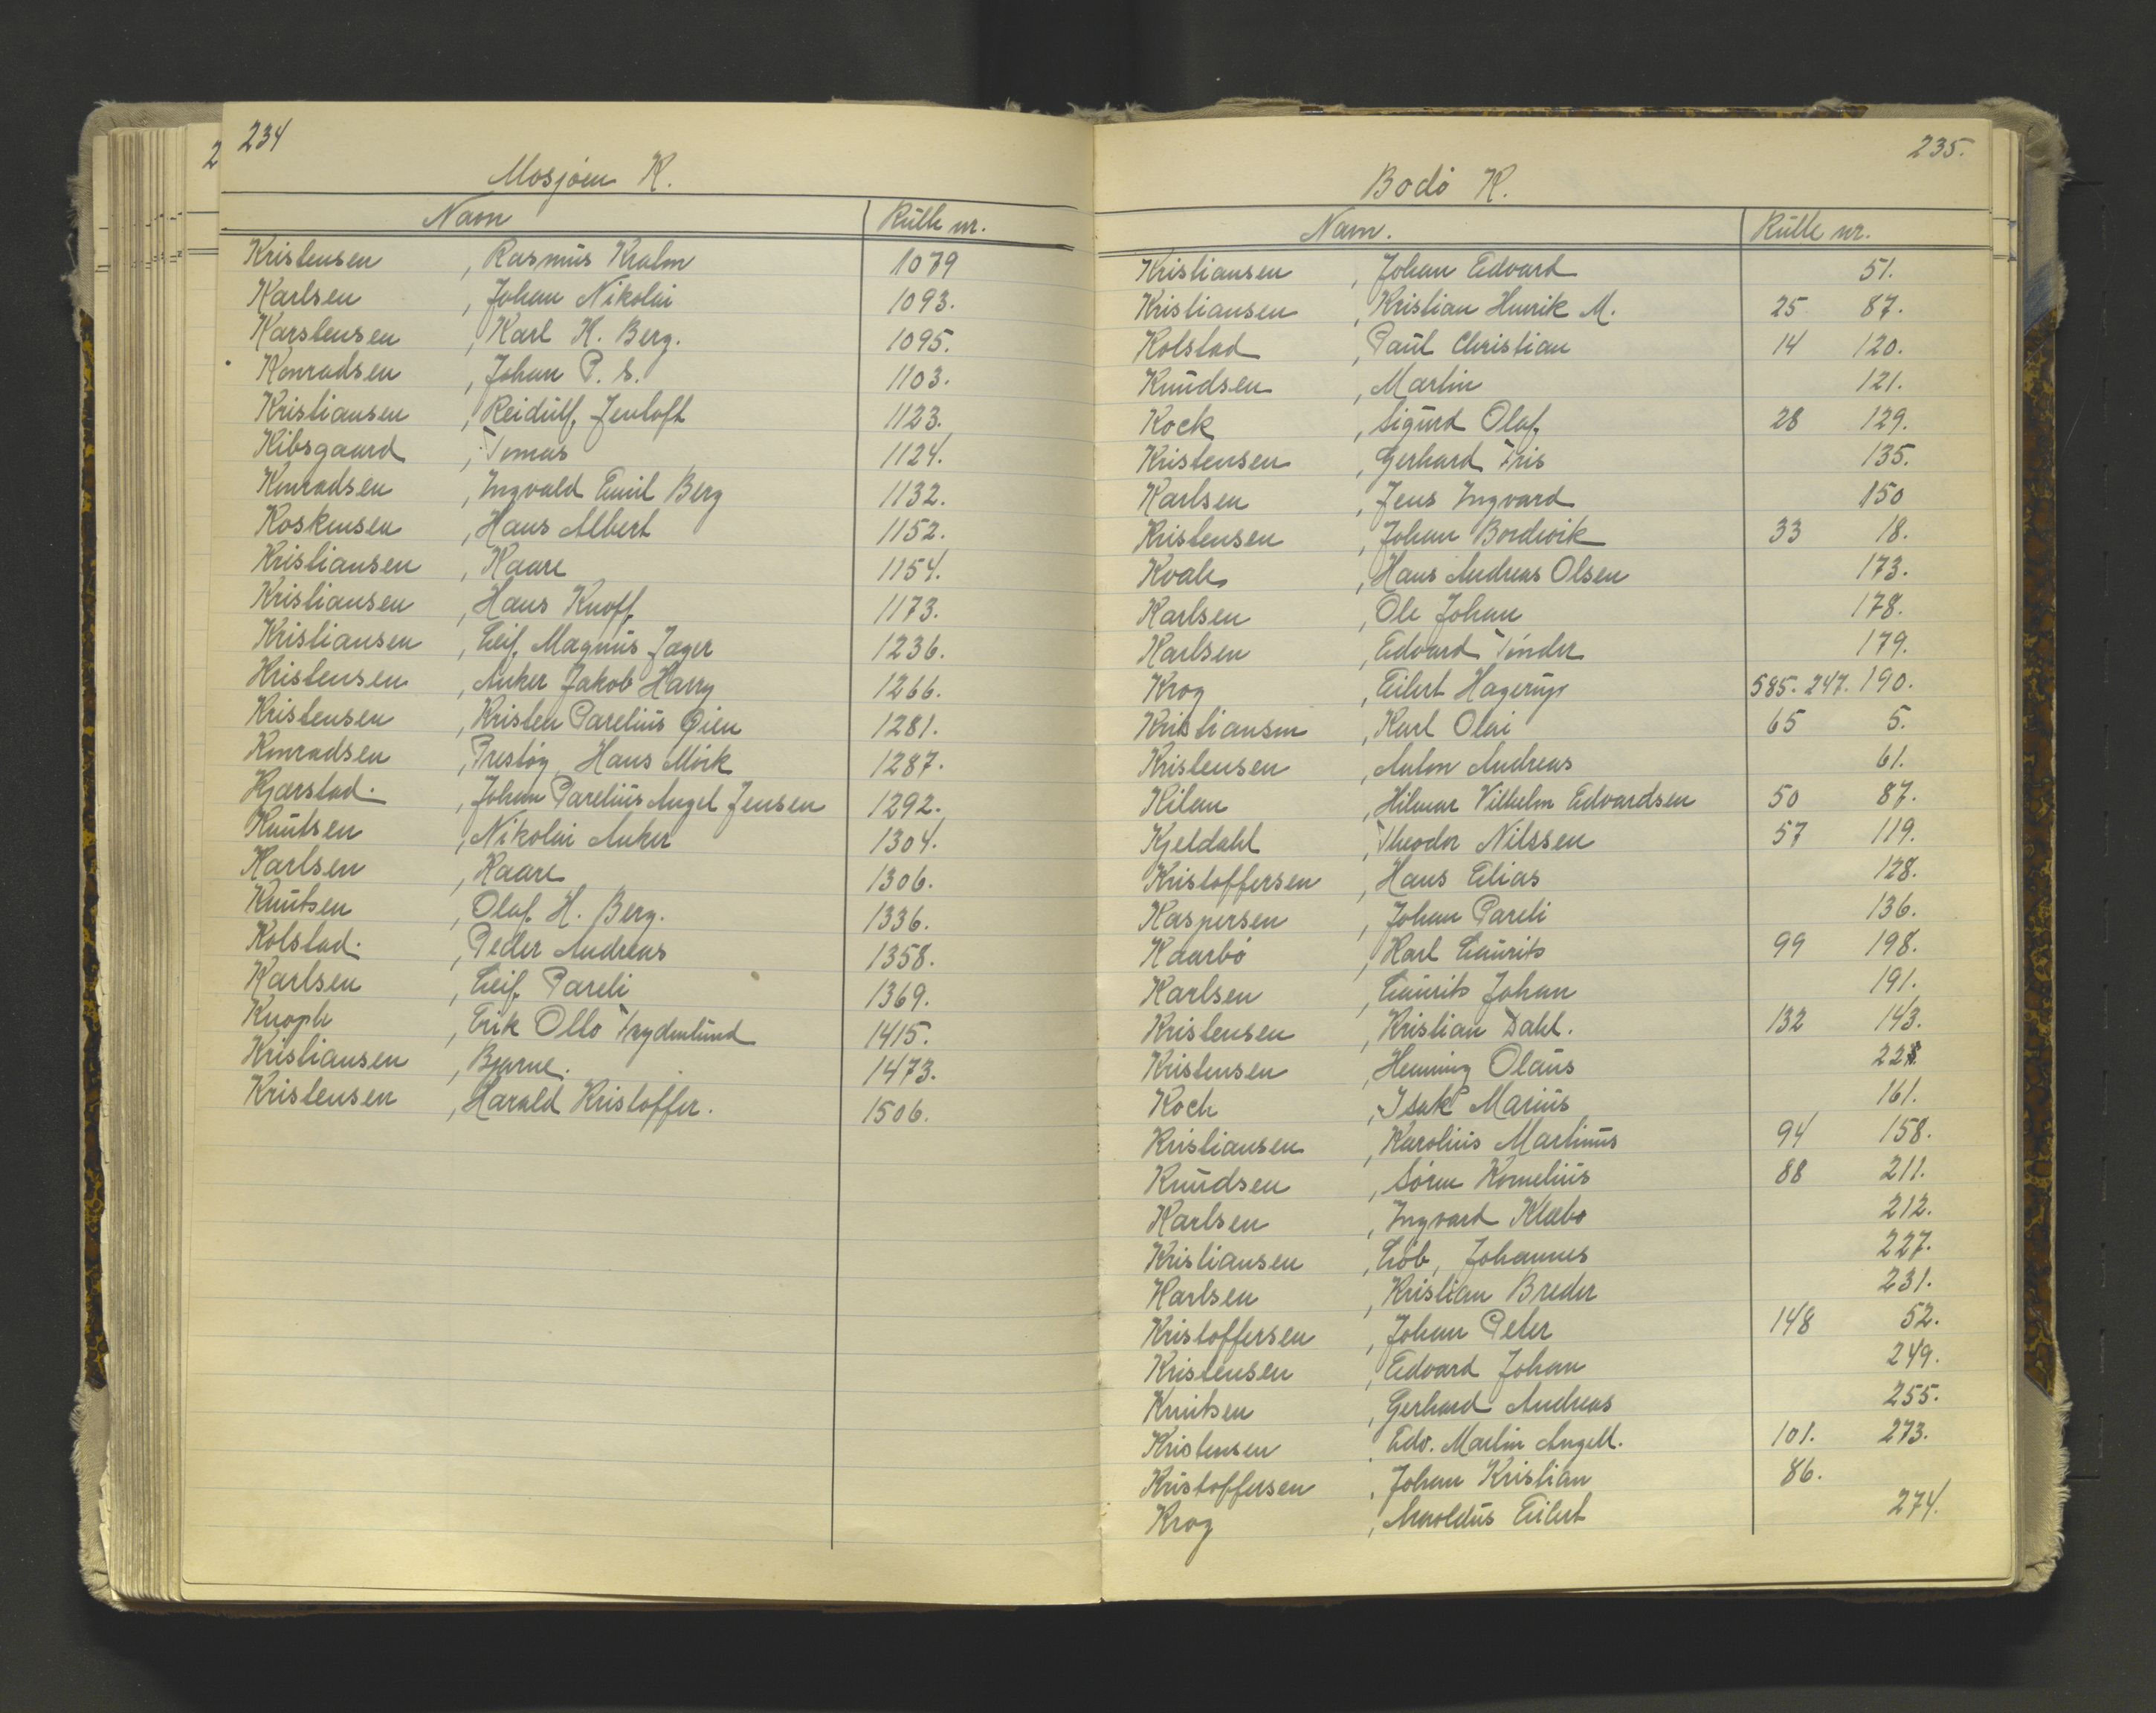 234
Mosjøen K.
Navn Rulle nr.
Kristensen , Rasmus Kralm 1079
Karlsen , Johan Nikolai 1093.
Karstensen , Karl H. Berg. 1095.
Konradsen , Johan P. S. 1103.
Kristiansen , Reidulf Jentoft 1123.
Kibsgaard , Tomas 1124.
Konradsen , Ingvald Emil Berg 1132.
Koskensen , Hans Albert 1152.
Kristiansen , Kaare 1154.
Kristiansen , Hans Knoff 1173.
Kristiansen , Leif Magnus Jæger 1236.
Kristensen , Anker Jakob Harry 1266.
Kristensen , Kristen Parelius Øien 1281.
Konradsen , Prestøy, Hans Mörk 1287.
Kjærstad. , Johan Parelius Angel Jensen 1292.
Knutsen , Nikolai Anker 1304.
Karlsen , Kaare 1306.
Knutsen , Olaf H. Berg. 1336.
Kolstad. , Peder Andreas 1358.
Karlsen , Leif Pareli 1369.
Knoph , Erik Otto Frydenlund 1415.
Kristiansen , Bjarne. 1473.
Kristensen , Harald Kristoffer. 1506.
235.
Bodö K.
Navn. Rulle nr.
Kristiansen , Johan Edvard 51.
Kristiansen , Kristian Henrik M. 25 87.
Kolstad , Paul Christian 14 120.
Knudsen , Martin 121.
Kock , Sigurd Olaf 28 129.
Kristensen , Gerhard Friis 135.
Karlsen , Jens Ingvard 150
Kristensen , Johan Bordevik 33 18.
Kvale , Hans Andreas Olsen 173.
Karlsen , Ole Johan 178.
Karlsen , Edvard Tönder 179.
Krog , Eilert Hagerup 585. 247. 190.
Kristiansen , Karl Olai 65 5.
Kristensen , Anton Andreas 61.
Kilen , Hilmar Vilhelm Edvardsen 50 87.
Kjeldahl , Theodor Nilssen 57 119.
Kristoffersen , Hans Elias 128.
Kaspersen , Johan Pareli 136.
Kaarbö , Karl Laurits 99 198.
Karlsen , Laurits Johan 191.
Kristensen , Kristian Dahl. 132 143.
Kristensen , Henning Olaus
Koch , Isak Marius 161.
Kristiansen , Karolius Martinus 94 158.
Knudsen , Sören Kornelius 88 211.
Karlsen , Ingvard Klæbo 212.
Kristiansen , Löb, Johannes 227.
Karlsen , Kristian Breder 231.
Kristoffersen , Johan Peter 148 52.
Kristensen , Edvard Johan 249.
Knutsen , Gerhard Andreas 255.
Kristensen , Edv. Martin Angell. 101. 273.
Kristoffersen , Johan Kristian 86.
Krog , Arnoldus Eilert 274.